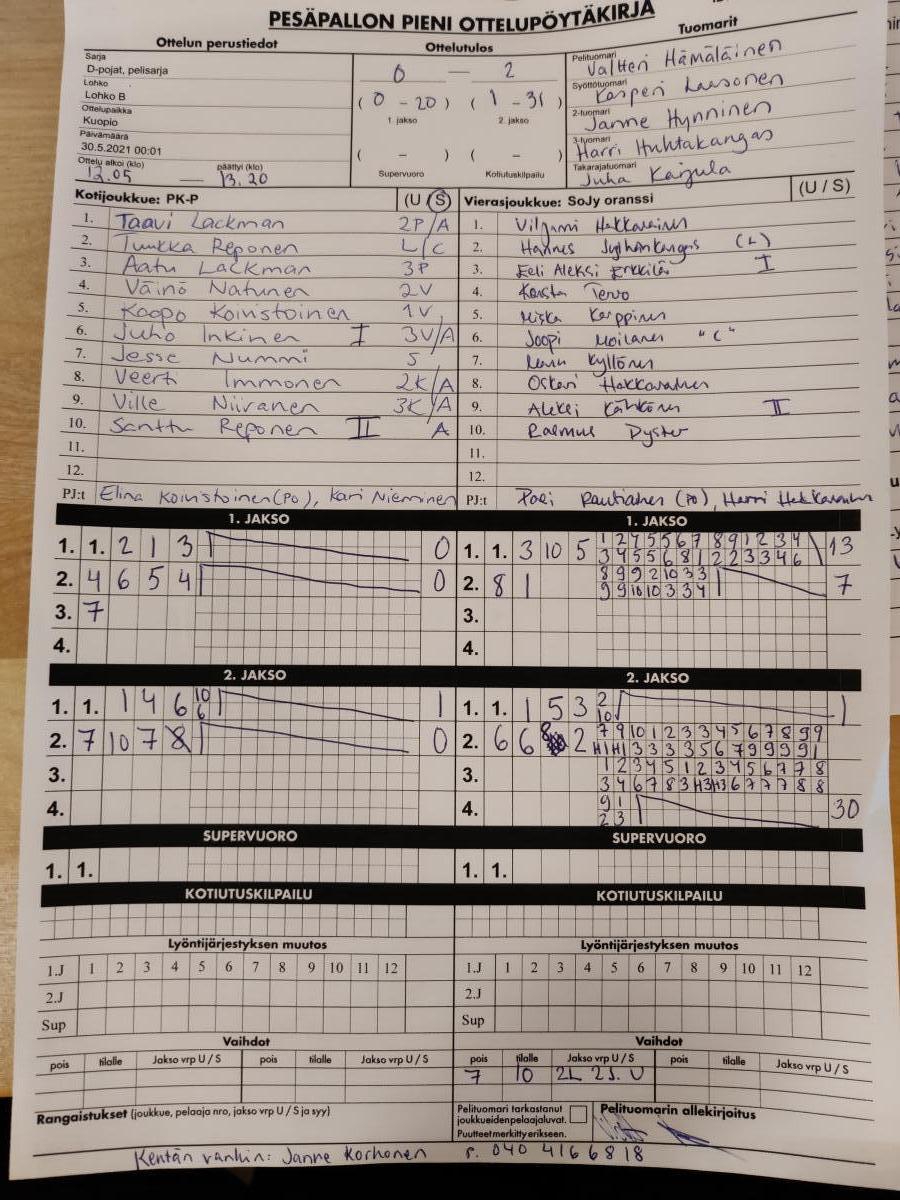 PESÄPALLON PIENI OTTELUPÖYTÄKIRJA
Ottelun perustiedot
Sarja
D-pojat, pelisarja
Lohko
Lohko B
Ottelupaikka
Kuopio
Päivämäärä
30.5.2021 00:01
Ottelu alkoi (klo) päättyi (klo)
12.05 — 13.20
Ottelutulos
0 — 2
(0 - 20) (1 - 31)
1. jakso 2. jakso
( - ) ( - )
Supervuoro Kotiutuskilpailu
Tuomarit
Pelituomari
Valtteri Hämäläinen
Syöttötuomari
Kasperi Laasonen
2-tuomari
Janne Hynninen
3-tuomari
Harri Huhtakangas
Takarajatuomari
Juha Karjula
Kotijoukkue: PK-P (U / S)
1. Taavi Lackman 2P/A
2. Tuukka Reponen L/C
3. Aatu Lackman 3P
4. Väinö Natunen 2V
5. Koopo Koivistoinen 1V
6. Juho Inkinen I 3V/A
7. Jesse Nummi 5
8. Veerti Immonen 2K/A
9. Ville Niiranen 3K/A
10. Santtu Reponen II A
11.
12.
PJ:t Elina Koivistoinen (PO), Kari Nieminen
Vierasjoukkue: SoJy oranssi (U / S)
1. Viljami Hakkarainen
2. Hannes Sydänkangas (L)
3. Eeli Aleksi Erkkilä I
4. Konsta Tervo
5. Miska Karppinen
6. Joopi Moilanen "C"
7. Kyllönen
8. Oskari Hakkarainen
9. Aleksi Kähkönen II
10. Rasmus Dyster
11.
12.
PJ:t Pasi Rautiainen (PO), Harri Hakkarainen
1. JAKSO
1. 1. 2 1 3 0
2. 4 6 5 4 0
3. 7
4.
2. JAKSO
1. 1. 1 4 6 10 6 1
2. 7 10 7 8 0
3.
4.
SUPERVUORO
1. 1.
KOTIUTUSKILPAILU
1. JAKSO
1 2 4 5 5 6 7 8 9 1 2 3 4
1. 1. 3 10 5 13
3 4 5 5 6 8 1 2 2 3 3 4 6
8 9 9 2 10 3 3
2. 8 1 7
9 9 10 10 3 3 4
3.
4.
2. JAKSO
1. 1. 1 5 3 2 10 1
7 9 10 1 2 3 3 4 5 6 7 8 9 9
2. 6 6 8 2
H1 H1 3 3 3 3 5 6 7 9 9 9 9 1
1 2 3 4 5 1 2 3 4 5 6 7 7 8
3.
3 4 6 7 8 3 H3 H3 6 7 7 7 8 8
9 1
4. 30
2 3
SUPERVUORO
1. 1.
KOTIUTUSKILPAILU
Lyöntijärjestyksen muutos
1.J 1 2 3 4 5 6 7 8 9 10 11 12
2.J
Sup
Vaihdot
pois tilalle Jakso vrp U / S pois tilalle Jakso vrp U / S
Lyöntijärjestyksen muutos
1.J 1 2 3 4 5 6 7 8 9 10 11 12
2.J
Sup
Vaihdot
pois tilalle Jakso vrp U / S pois tilalle Jakso vrp U / S
7 10 2L 2J. U
Rangaistukset (joukkue, pelaaja nro, jakso vrp U / S ja syy)
Pelituomari tarkastanut
joukkueidenpelaajaluvat.
Puutteetmerkittyerikseen.
Pelituomarin allekirjoitus
Kentän vanhin: Janne Korhonen P. 040 4166818